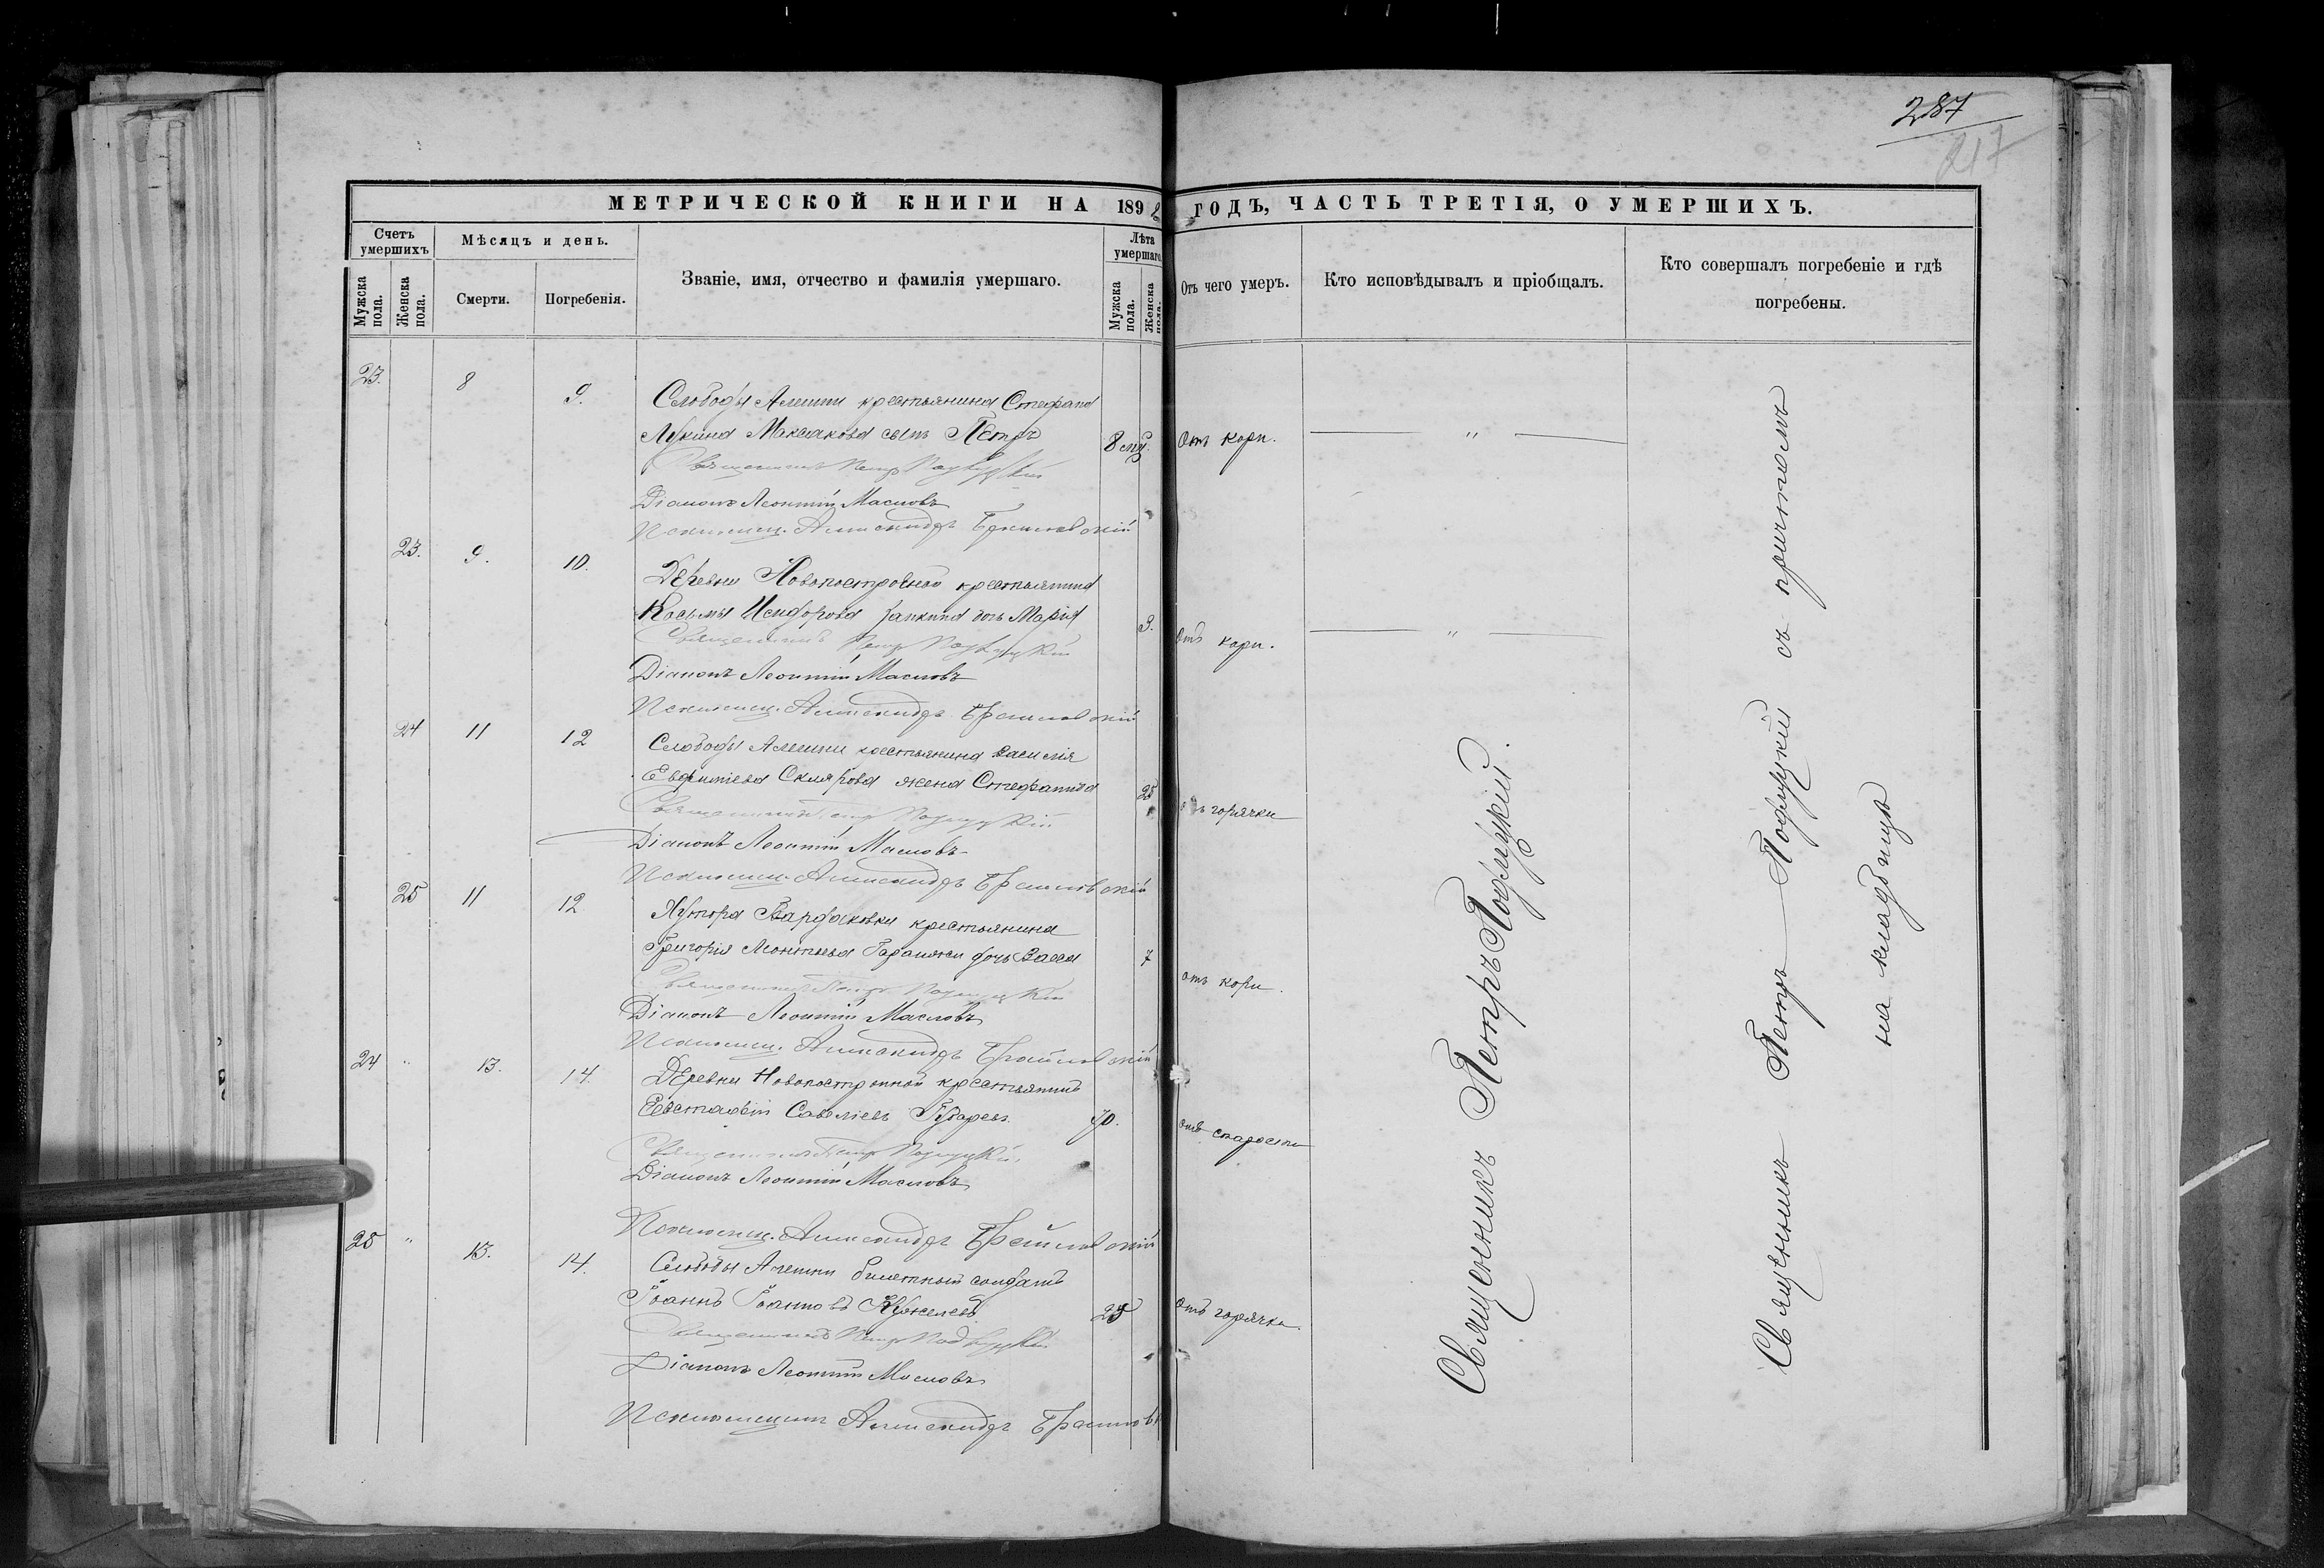 287
217
МЕТРИЧЕСКОЙ КНИГИ НА 1892 ГОДЪ, ЧАСТЬ ТРЕТІЯ, О УМЕРШИХЪ.
Счетъ умершихъ
Мѣсяцъ и день.
Званіе, имя, отчество и фамилія умершаго.
Лѣта умершаго
Отъ чего умеръ.
Кто исповѣдывалъ и пріобщалъ.
Кто совершалъ погребеніе и гдѣ погребены.
Мужска пола.
Женска пола.
Смерти.
Погребенія.
Мужска пола.
Женска пола.
23. 8 9. Слободы Алешни крестьянина Стефана
Лукина Максакова сынъ Петръ 8 мц. Отъ кори. — " —
Священникъ Петръ Подлуцкій
Діаконъ Леонтій Масловъ
Псаломщ. Александръ Браиловскій
23. 9. 10. Деревни Новопостроеной крестьянина
Косьмы Исидорова дочь Марія 3. отъ кори. — " —
Священникъ Петръ Подлуцкій
Діаконъ Леонтій Масловъ
Псаломщ. Александръ Браиловскій
24 11 12 Слободы Алешни крестьянина Василія
Евфиміева Склярова жена Стефанида 25 отъ горячки
Священникъ Петръ Подлуцкій
Діаконъ Леонтій Масловъ
Псаломщ. Александръ Браиловскій
25 11 12 Хутора Бардаковки крестьянина
Григорія Леонтьева дочь Васса 7 отъ кори.
Священникъ Петръ Подлуцкій
Діаконъ Леонтій Масловъ
Псаломщ. Александръ Браиловскій
24 " 13. 14. Деревни Новопостроиной крестьянинъ
Евстафій Савеліевъ 70. отъ старости
Священникъ Петръ Подлуцкій
Діаконъ Леонтій Масловъ
Псаломщ. Александръ Браиловскій
25 " 13. 14. Слободы Алешни билетный солдатъ
Іоаннъ Іоанновъ 25 отъ горячки.
Священникъ Петръ Подлуцкій
Діаконъ Леонтій Масловъ
Псаломщикъ Александръ Браиловс
Священникъ Петръ Подлуцкій.
Священникъ Петръ Подлуцкій съ причтомъ
на кладбищѣ